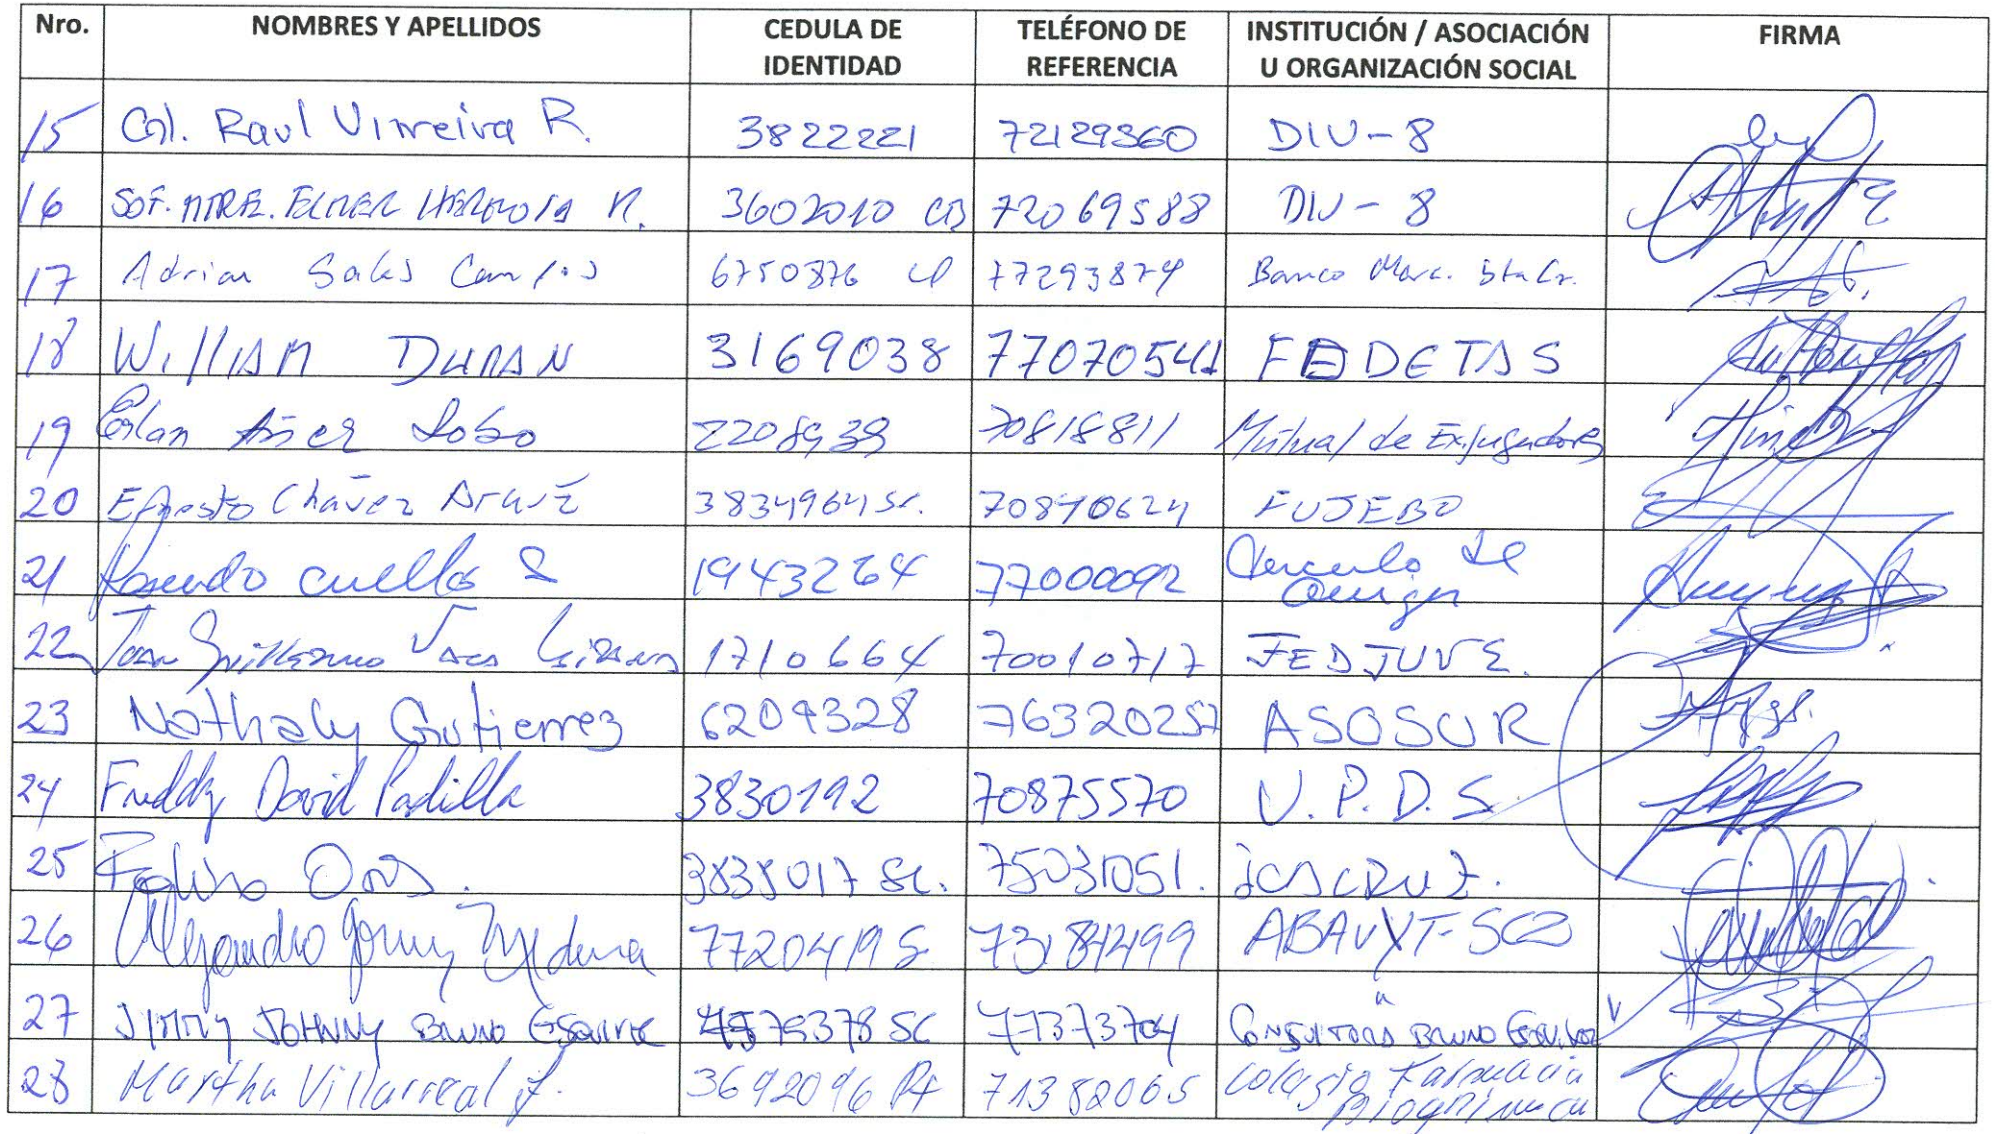 Nro. NOMBRES Y APELLIDOS CEDULA DE IDENTIDAD TELÉFONO DE REFERENCIA INSTITUCIÓN / ASOCIACIÓN U ORGANIZACIÓN SOCIAL FIRMA
15 Cnl. Raul Vimreira R. 3822221 72129360 DIV-8
16 SOF. MTRE. R. 3602010 CB 72069588 DIV-8
17 Adrian Sales Campos 6750876 77293874 Banco Merc. Sta Cr.
18 WILLIAM DURAN 3169038 77070541 FEDETAS
19 Erlan Añez Lobo 2208939 70818811 Mutual de Exjugadores
20 Ernesto Chávez Arauz 3834964 SC. 70870624 FUJEBO
21 Rosendo cuellar S 1943264 77000092 Circulo de Amigos
22 Juan Guillermo Vaca 1710664 70010717 FEDJUVE.
23 Nathaly Gutierrez 6209328 76320257 ASOSUR
24 Freddy David Padilla 3830192 70875570 U.P.D.S.
25 3838017 SC. 75031051.
26 Alejandro Medina 7720419 S 73184499 ABAVYT-SCZ
27 JIMMY JOHNNY BRUNO ESQUIVEL 4579378 SC 71373704 CONSULTORA BRUNO ESQUIVEL
28 Martha Villarreal J. 3692096 Pt 71382065 Colegio Farmacia Bioquimica